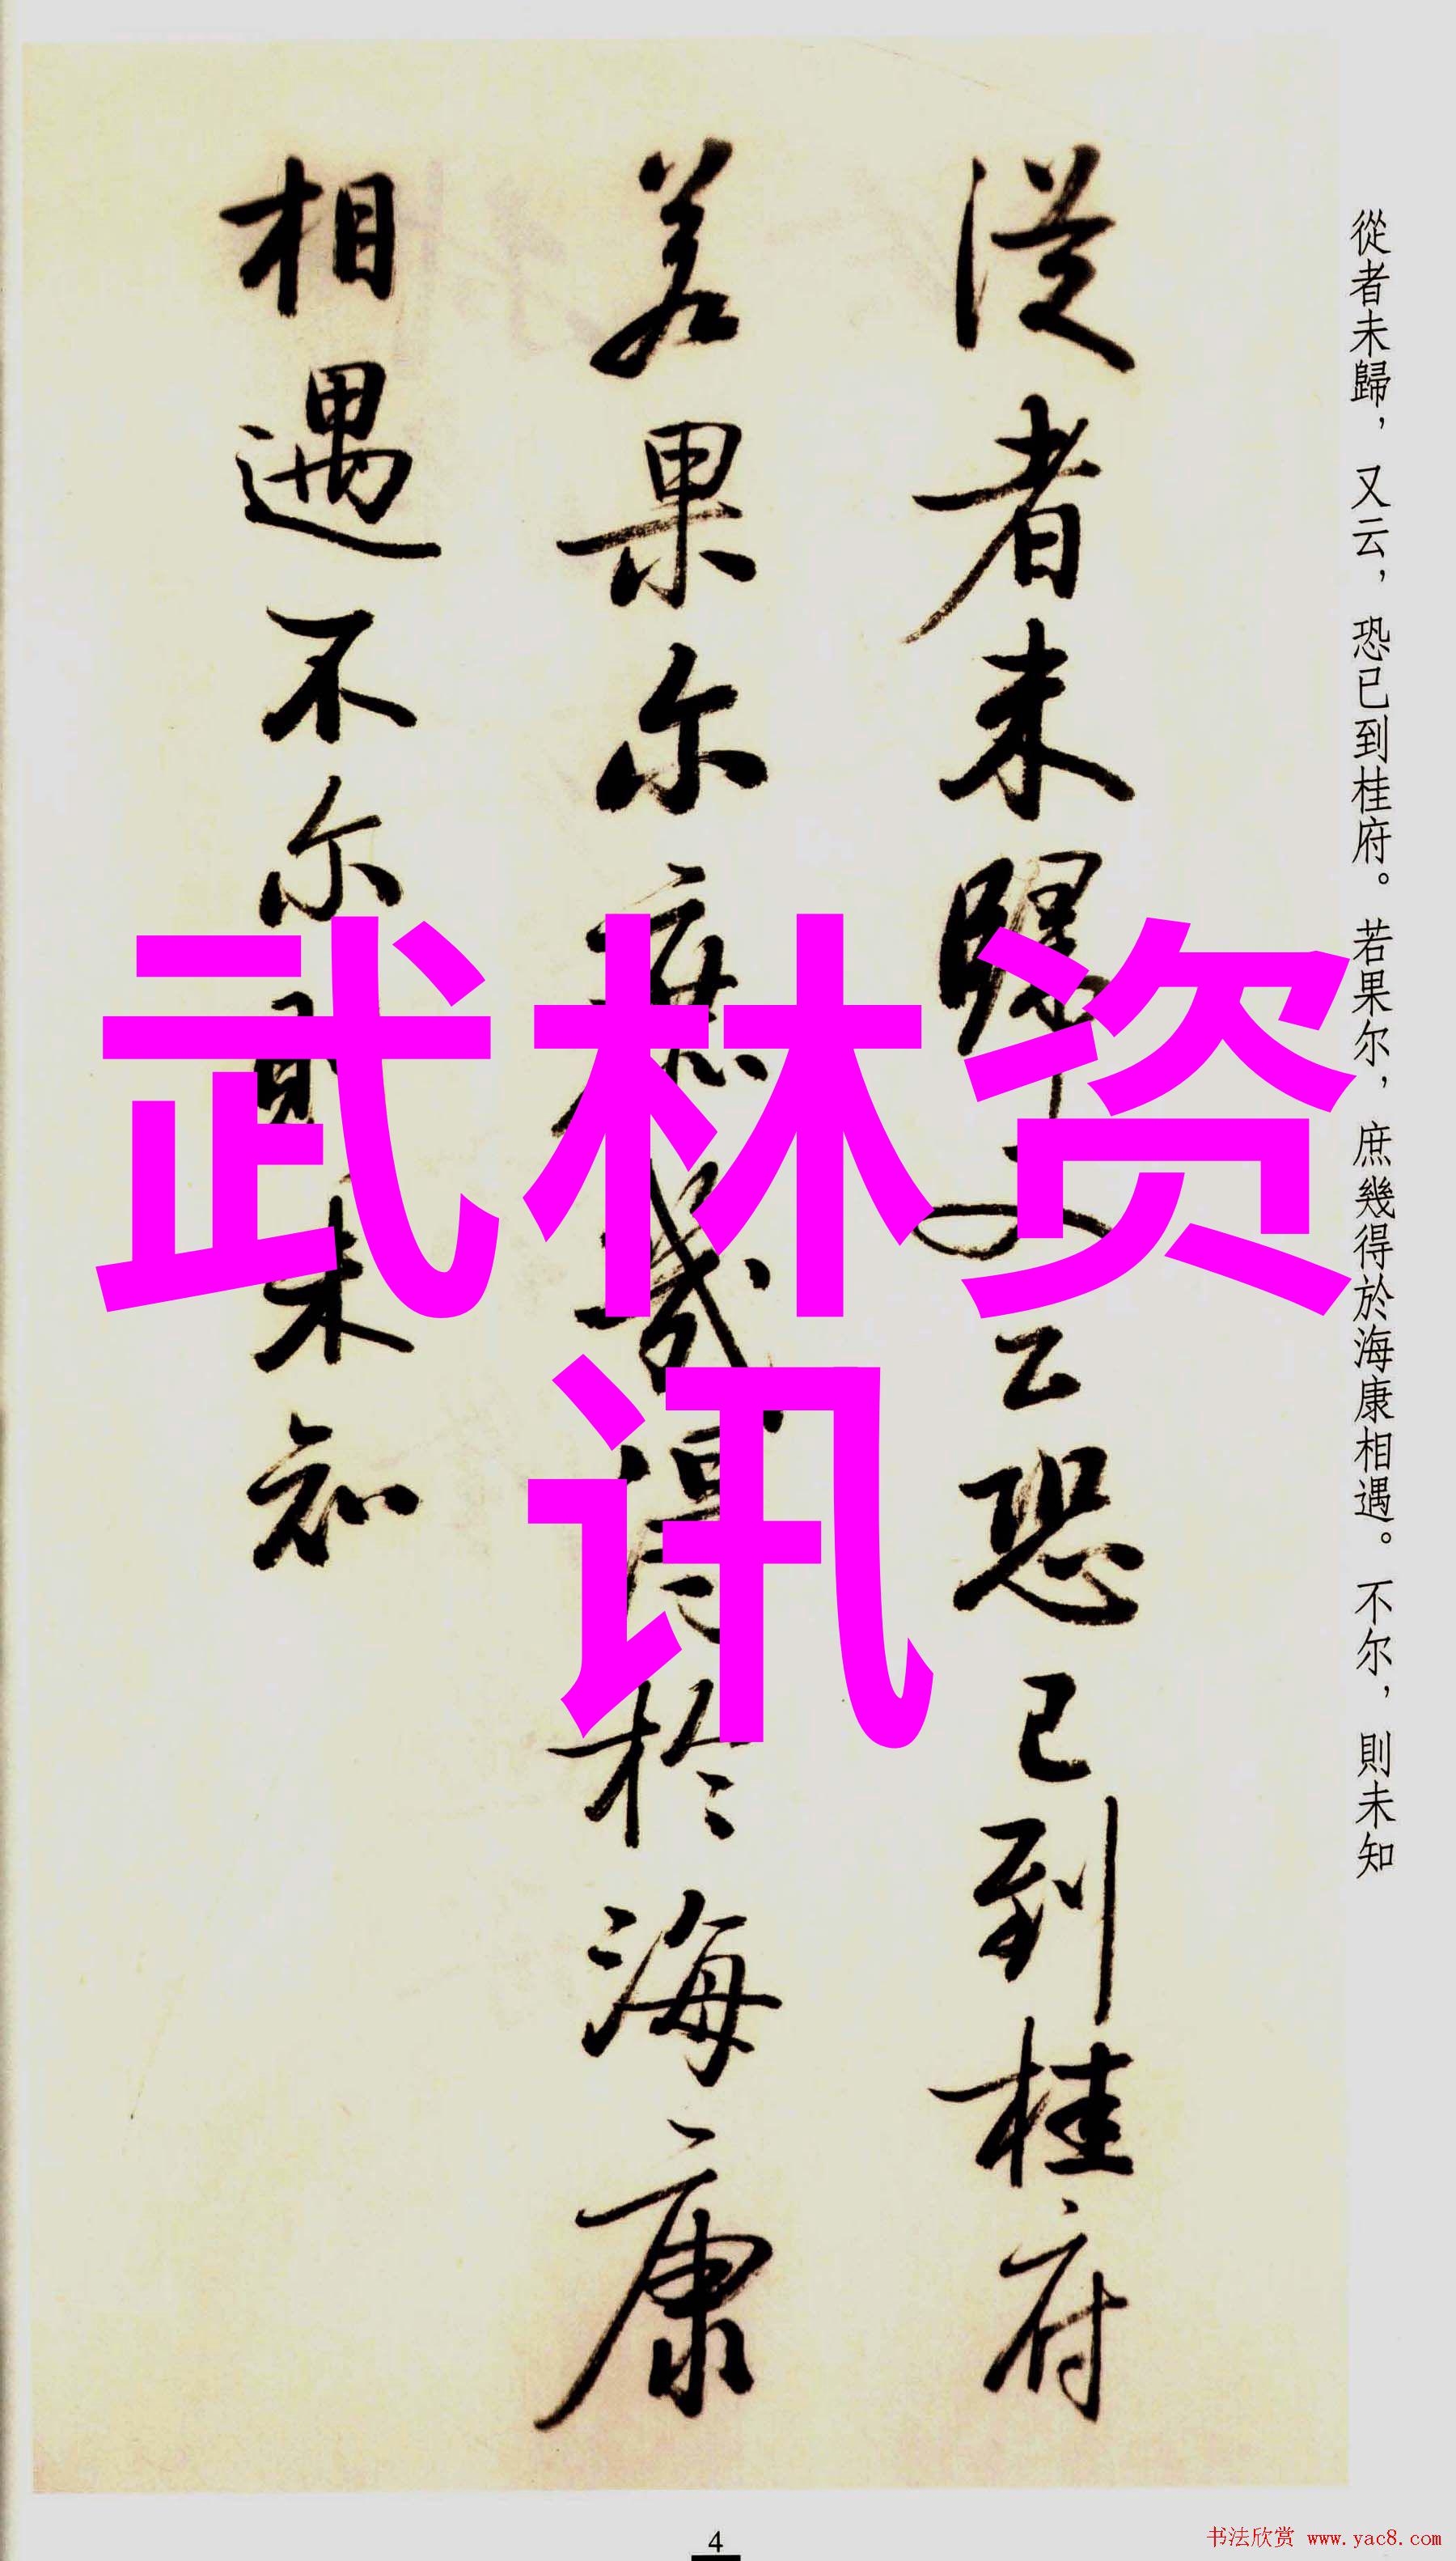 從者未歸，又云，恐已到桂府。若果尔，庶幾得於海康相遇。不尔，則未知
從者未歸又云恐已到桂府
若果尔庶幾得於海康
相遇不尔則未知
武林资
讯
4
书法欣赏 www.yac8.com